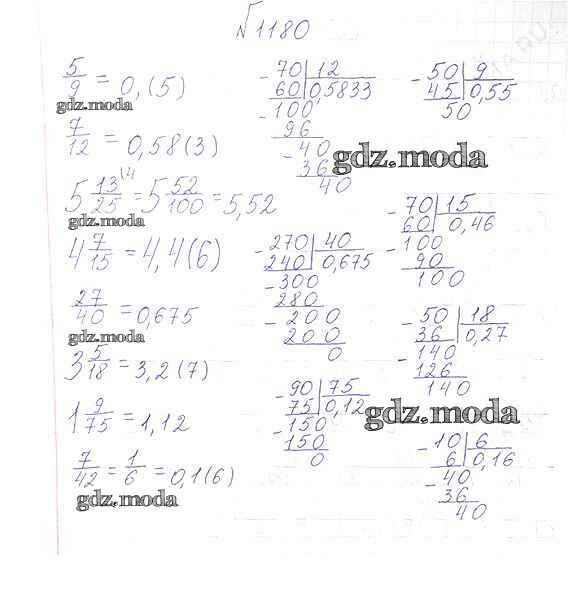 №1180
5/9 = 0,(5)
7/12 = 0,58(3)
5 13/25 \4 = 5 52/100 = 5,52
4 7/15 = 4,4(6)
27/40 = 0,675
3 5/18 = 3,2(7)
1 9/75 = 1,12
7/42 = 1/6 = 0,1(6)
-70|12
60|0,5833
-100
96
-40
36
40
-50|9
45|0,55
50
-270|40
240|0,675
-300
280
-200
200
0
-70|15
60|0,46
-100
90
100
-50|18
36|0,27
-140
126
140
-90|75
75|0,12
-150
150
0
-10|6
6|0,16
-40
36
40
gdz.moda
gdz.moda
gdz.moda
gdz.moda
gdz.moda
gdz.moda